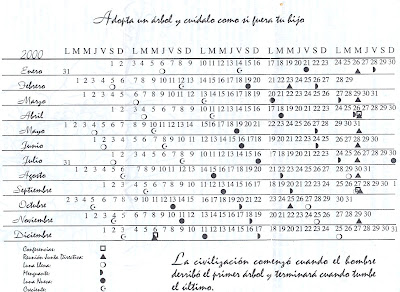 Adopta un árbol y cuídalo como si fuera tu hijo
2000 L M M J V S D L M M J V S D L M M J V S D L M M J V S D L M M J V S D
Enero 31 1 2 3 4 5 6 7 8 9 10 11 12 13 14 15 16 17 18 19 20 21 22 23 24 25 26 27 28 29 30
Febrero 1 2 3 4 5 6 7 8 9 10 11 12 13 14 15 16 17 18 19 20 21 22 23 24 25 26 27 28 29
Marzo 1 2 3 4 5 6 7 8 9 10 11 12 13 14 15 16 17 18 19 20 21 22 23 24 25 26 27 28 29 30 31
Abril 1 2 3 4 5 6 7 8 9 10 11 12 13 14 15 16 17 18 19 20 21 22 23 24 25 26 27 28 29 30
Mayo 1 2 3 4 5 6 7 8 9 10 11 12 13 14 15 16 17 18 19 20 21 22 23 24 25 26 27 28 29 30 31
Junio 1 2 3 4 5 6 7 8 9 10 11 12 13 14 15 16 17 18 19 20 21 22 23 24 25 26 27 28 29 30
Julio 31 1 2 3 4 5 6 7 8 9 10 11 12 13 14 15 16 17 18 19 20 21 22 23 24 25 26 27 28 29 30
Agosto 1 2 3 4 5 6 7 8 9 10 11 12 13 14 15 16 17 18 19 20 21 22 23 24 25 26 27 28 29 30 31
Septiembre 1 2 3 4 5 6 7 8 9 10 11 12 13 14 15 16 17 18 19 20 21 22 23 24 25 26 27 28 29 30
Octubre 2 3 4 5 6 7 8 9 10 11 12 13 14 15 16 17 18 19 20 21 22 23 24 25 26 27 28 29 30
Noviembre 1 2 3 4 5 6 7 8 9 10 11 12 13 14 15 16 17 18 19 20 21 22 23 24 25 26 27 28 29 30
Diciembre 1 2 3 4 5 6 7 8 9 10 11 12 13 14 15 16 17 18 19 20 21 22 23 24 25 26 27 28 29 30 31
Conferencias:
Reunión Junta Directiva:
Luna Llena:
Menguante:
Luna Nueva:
Creciente:
La civilización comenzó cuando el hombre
derribó el primer árbol y terminará cuando tumbe
el último.